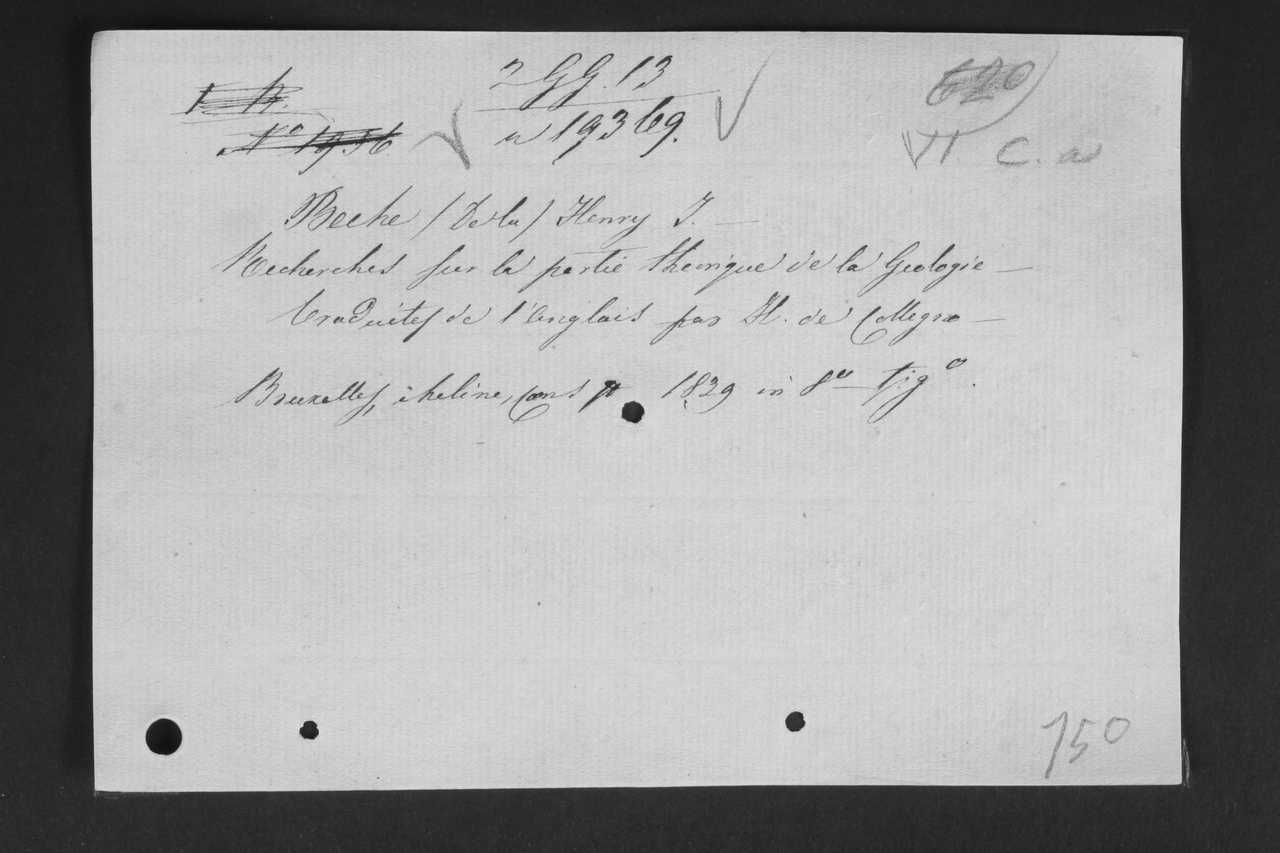 2 GG. 13
a 19369.
620
VI C. a
Beche (De la) Henry J. —
Recherches sur la partie theorique de la Geologie —
traduites de l'anglais par H. de Collegno —
Bruxelles, in 8º figº.
150